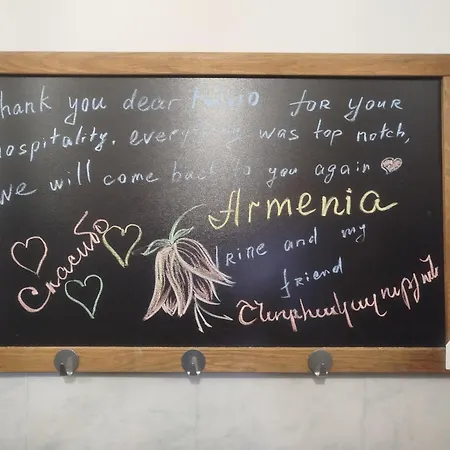 Thank you dear for your
hospitality. everything was top notch,
we will come back to you again
Armenia
Irine and my
friend
Спасибо
Շնորհակալություն